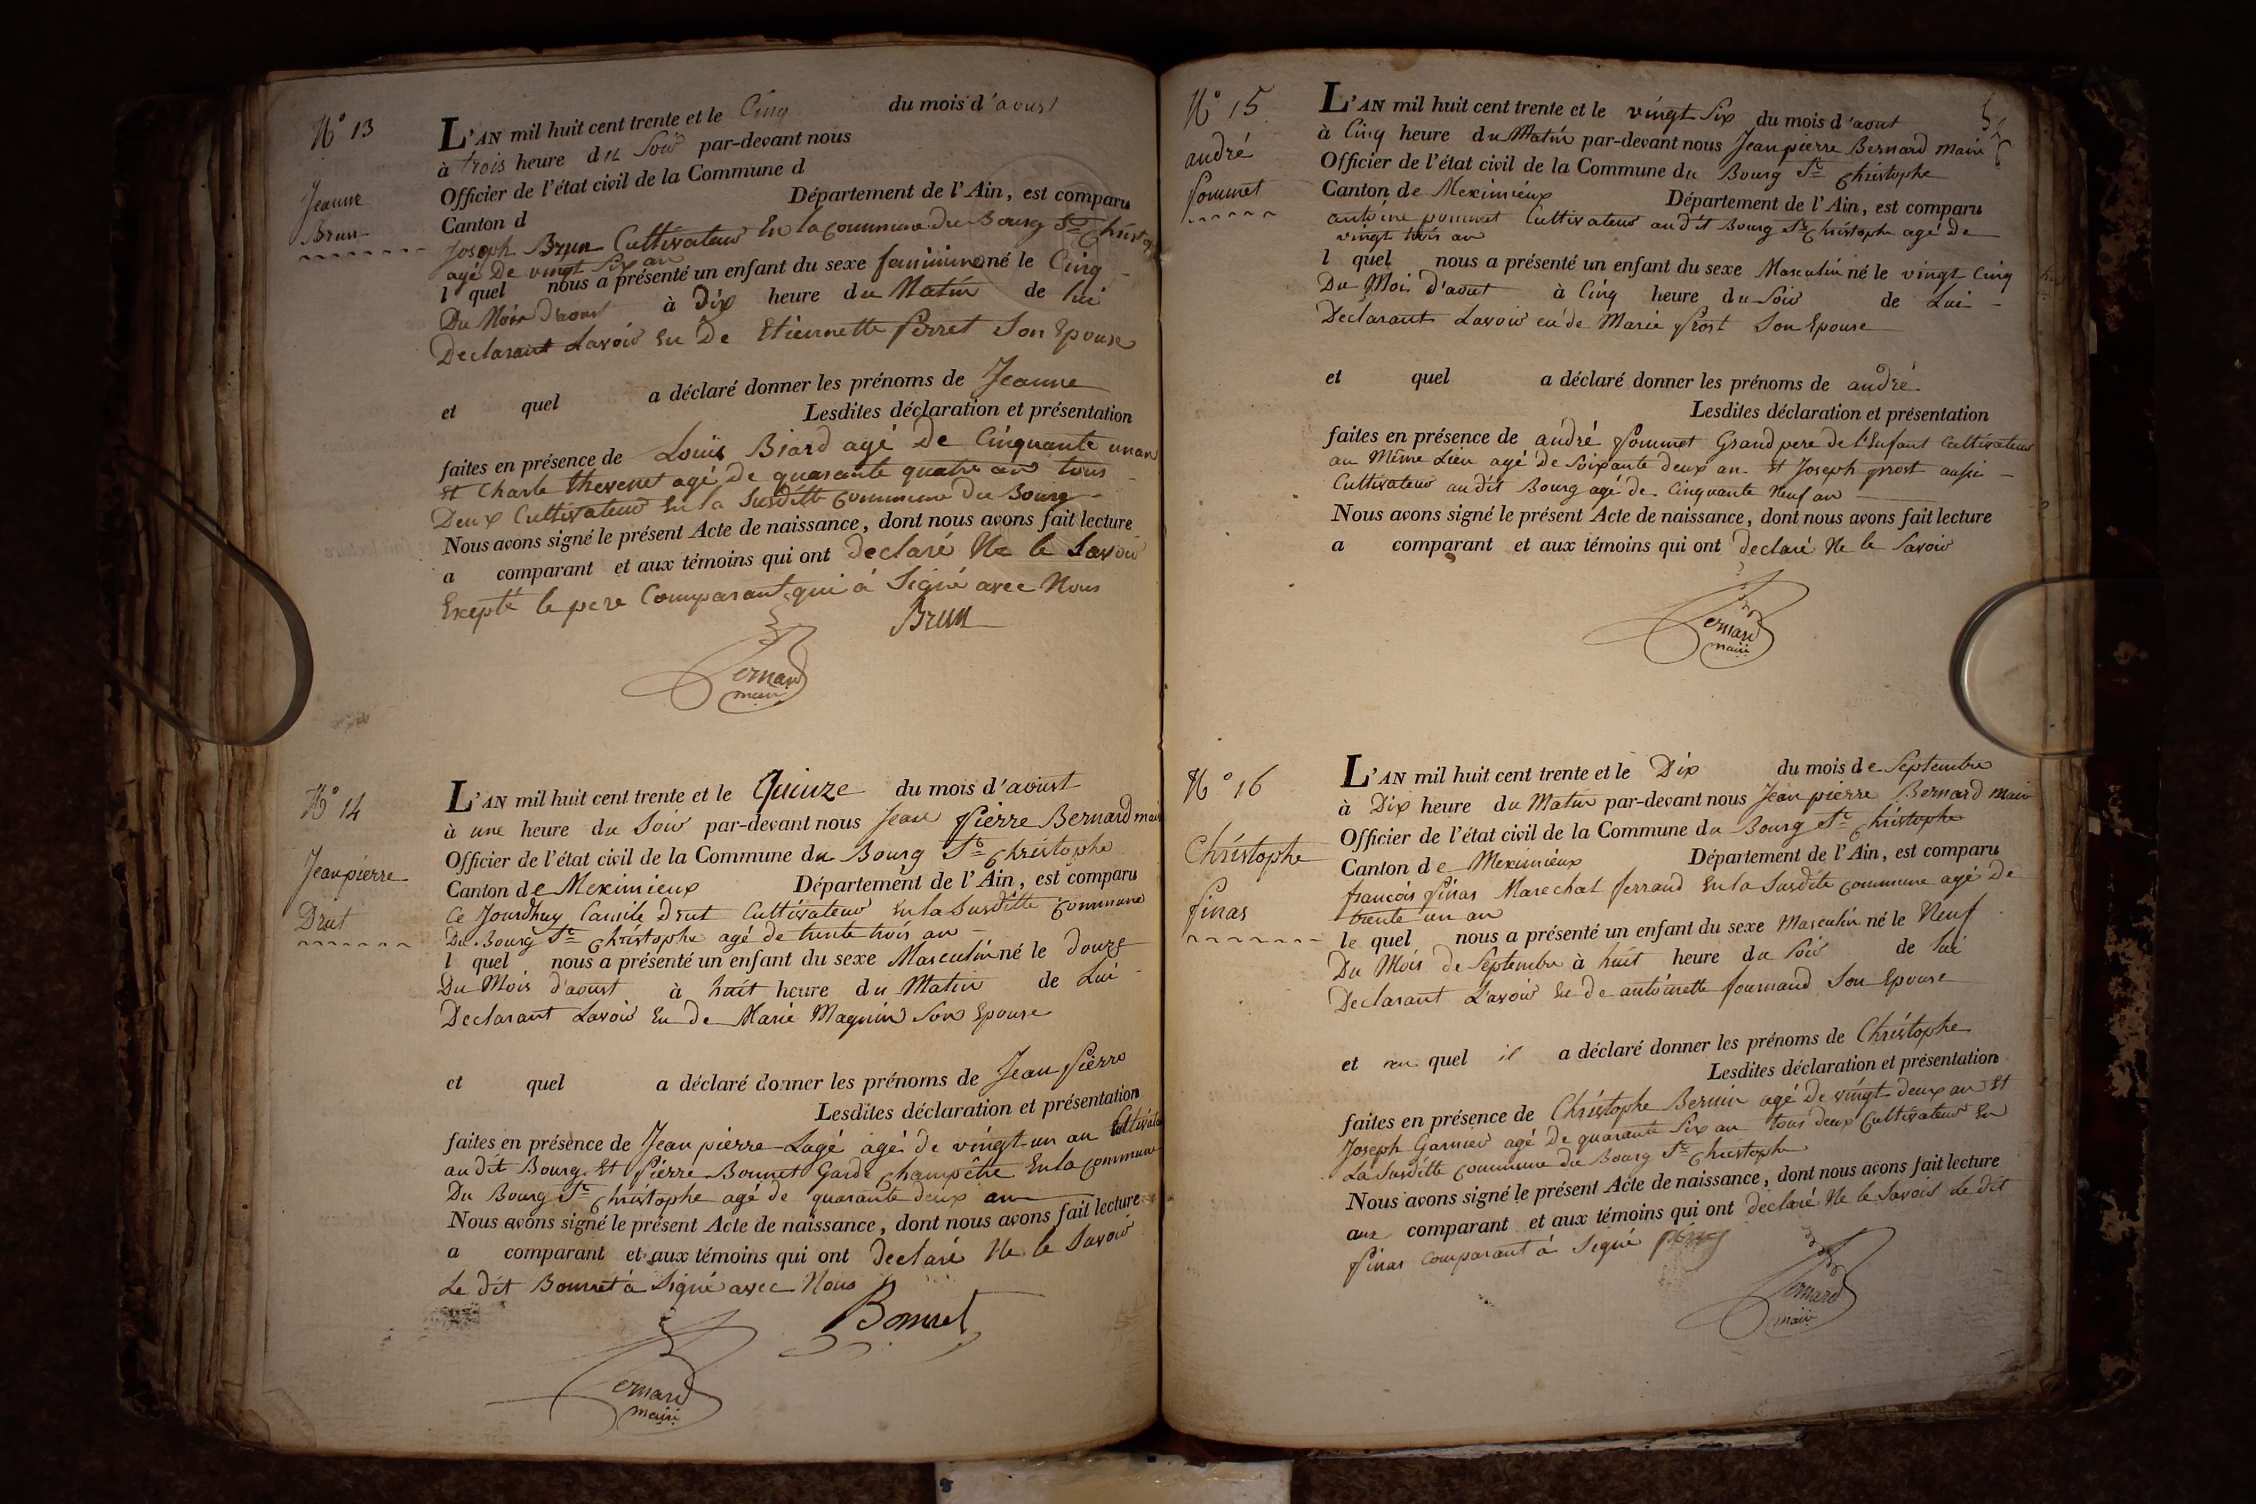 N° 13
Jeanne
Brun
L'AN mil huit cent trente et le Cinq du mois d'aoust
à trois heure du Soir par-devant nous
Officier de l'état civil de la Commune d
Canton d Département de l'Ain, est comparu
Joseph Brun Cultivateur En la Commune du Bourg St Christophe
agé De vingt Six an
l quel nous a présenté un enfant du sexe faiminin né le Cinq
Du Mois d'aoust à Dix heure du Matin de lui
Declarant Lavoir Eu De Etiennette Perret Son Epouse
et quel a déclaré donner les prénoms de Jeanne
Lesdites déclaration et présentation
faites en présence de Louis Biard agé De Cinquante un an
Et Charle thevenet agé De quarante quatre an tous
Deux Cultivateur En la Susditte Commune du Bourg
Nous avons signé le présent Acte de naissance, dont nous avons fait lecture
a comparant et aux témoins qui ont declaré Ne le Savoir
Excepté le pere Comparant qui à Signé avec Nous
Brun
Bernard
maire
N° 14
Jean pierre
Drut
L'AN mil huit cent trente et le Quinze du mois d'aoust
à une heure du Soir par-devant nous Jean Pierre Bernard maire
Officier de l'état civil de la Commune du Bourg St Christophe
Canton de Meximieux Département de l'Ain, est comparu
Ce Jourdhuy Camile Drut Cultivateur En la Susditte Commune
Du Bourg St Christophe agé de trente trois an
l quel nous a présenté un enfant du sexe Masculin né le douze
Du Mois d'aoust à huit heure du Matin de Lui
Declarant Lavoir Eu de Marie Magnin Son Epouse
et quel a déclaré donner les prénoms de Jean Pierre
Lesdites déclaration et présentation
faites en présence de Jean pierre Lagé agé de vingt un an Cultivateur
au dit Bourg Et Pierre Bonnet Garde Champêtre En la Commune
Du Bourg St Christophe agé de quarante deux an
Nous avons signé le présent Acte de naissance, dont nous avons fait lecture
a comparant et aux témoins qui ont Declaré Ne le Savoir
Le dit Bonnet à Signé avec Nous
Bonnet
Bernard
maire
N° 15
andré
Pommet
L'AN mil huit cent trente et le vingt Six du mois d'aout
à Cinq heure du Matin par-devant nous Jean pierre Bernard maire
Officier de l'état civil de la Commune du Bourg St Christophe
Canton de Meximieux Département de l'Ain, est comparu
antoine pommet Cultivateur au dit Bourg St Christophe agé de
vingt trois an
l quel nous a présenté un enfant du sexe Masculin né le vingt Cinq
Du Mois d'aout à Cinq heure du Soir de Lui
Declarant Lavoir eu de Marie Prost Son Epouse
et quel a déclaré donner les prénoms de andré
Lesdites déclaration et présentation
faites en présence de andré Pommet Grand pere de l'Enfant Cultivateur
au Même Lieu agé de Soixante deux an Et Joseph prost aussi
Cultivateur au dit Bourg agé de Cinquante Neuf an
Nous avons signé le présent Acte de naissance, dont nous avons fait lecture
a comparant et aux témoins qui ont declaré Ne le Savoir
Bernard
maire
N° 16
Christophe
Pinas
L'AN mil huit cent trente et le Dix du mois de Septembre
à Dix heure du Matin par-devant nous Jean pierre Bernard maire
Officier de l'état civil de la Commune du Bourg St Christophe
Canton de Meximieux Département de l'Ain, est comparu
francois Pinas Marechal ferrand En la Susdite Commune agé De
trente un an
le quel nous a présenté un enfant du sexe Masculin né le Neuf
Du Mois de Septembre à huit heure du Soir de lui
Declarant L'avoir Eu de antoinette fournand Son Epouse
et au quel il a déclaré donner les prénoms de Christophe
Lesdites déclaration et présentation
faites en présence de Christophe Bernin agé De vingt deux an Et
Joseph Garnier agé De quarante Six an tous deux Cultivateur En
La Susditte Commune du Bourg St Christophe
Nous avons signé le présent Acte de naissance, dont nous avons fait lecture
aux comparant et aux témoins qui ont declaré Ne le Savoir Le dit
Pinas Comparant à Signé
Bernard
maire